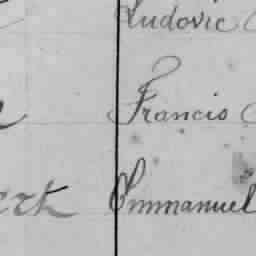 Ludovic
Francis
Emmanuel